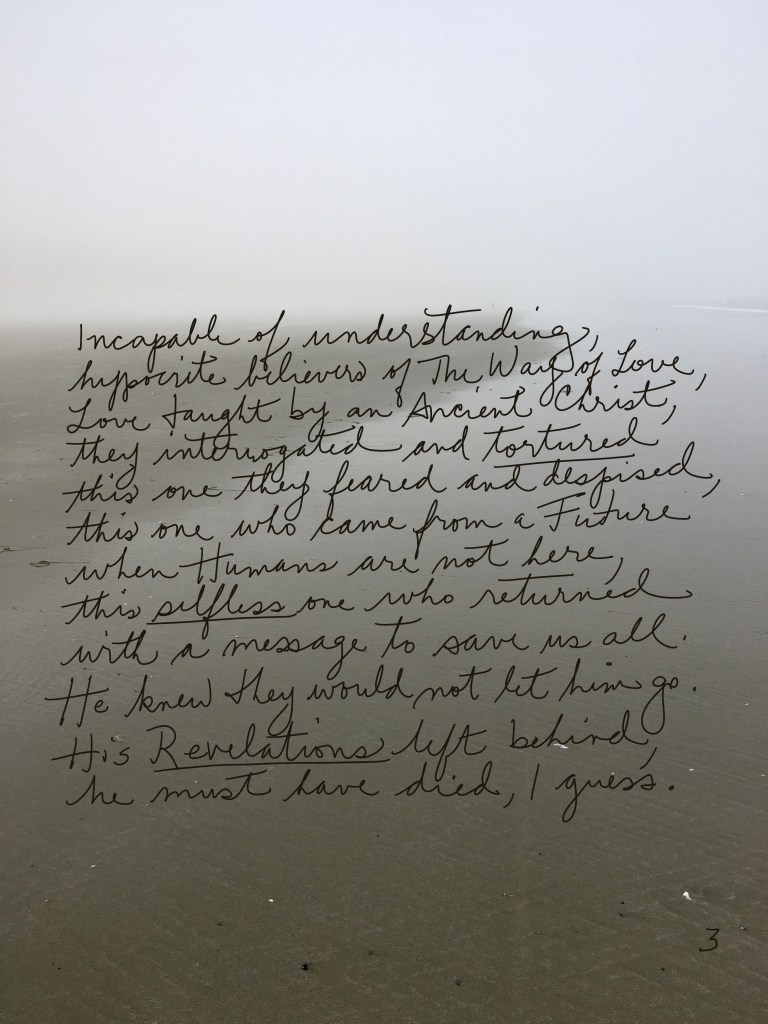 Incapable of understanding,
hypocrite believers of The Way of Love,
Love taught by an Ancient Christ,
they interrogated and tortured
this one they feared and despised,
this one who came from a Future
when Humans are not here,
this selfless one who returned
with a message to save us all.
He knew they would not let him go.
His Revelations left behind,
he must have died, I guess.
3